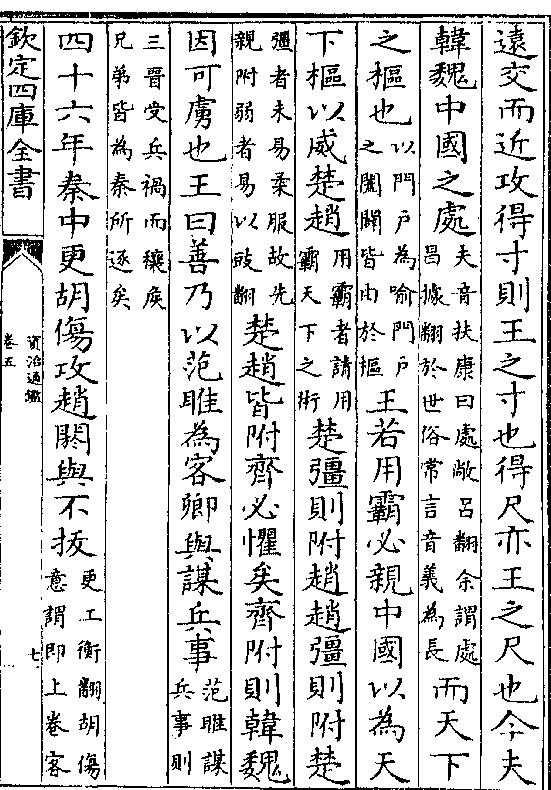 遠交而近攻得寸則王之寸也得尺亦王之尺也今夫
韓魏中國之處
夫音扶康曰處敞呂翻余謂處
昌據翻於世俗常言音義為長
而天下
之樞也
以門戶為喻門戶
之闔闢皆由於樞
王若用霸必親中國以為天
下樞以威楚趙
用霸者請用
霸天下之術
楚彊則附趙趙彊則附楚
彊者未易柔服故先
親附弱者易以豉翻
楚趙皆附齊必懼矣齊附則韓魏
因可虜也王曰善乃以范雎為客卿與謀兵事
范雎謀
兵事則
三晉受兵禍而穰侯
兄弟皆為秦所逐矣
四十六年秦中更胡傷攻趙閼與不拔
更工衡翻胡傷
意謂即上卷客
欽定四庫全書
資治通鑑
卷五
七